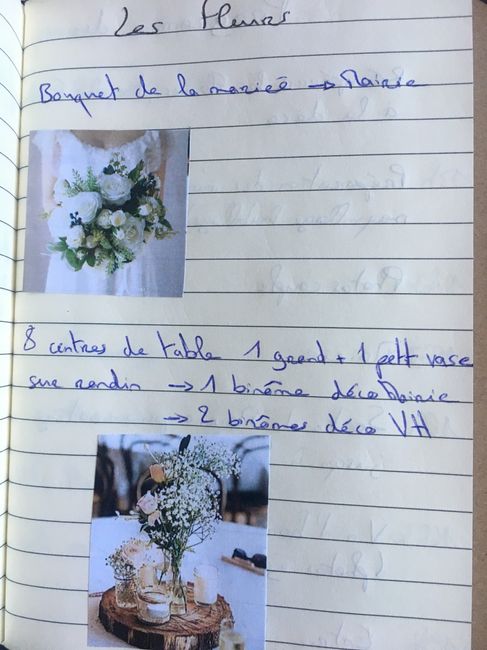 Les Fleurs
Bouquet de la mariée → Mairie
8 centres de table 1 grand + 1 petit vase
sur rondin → 1 binôme déco Mairie
→ 2 binômes déco VH